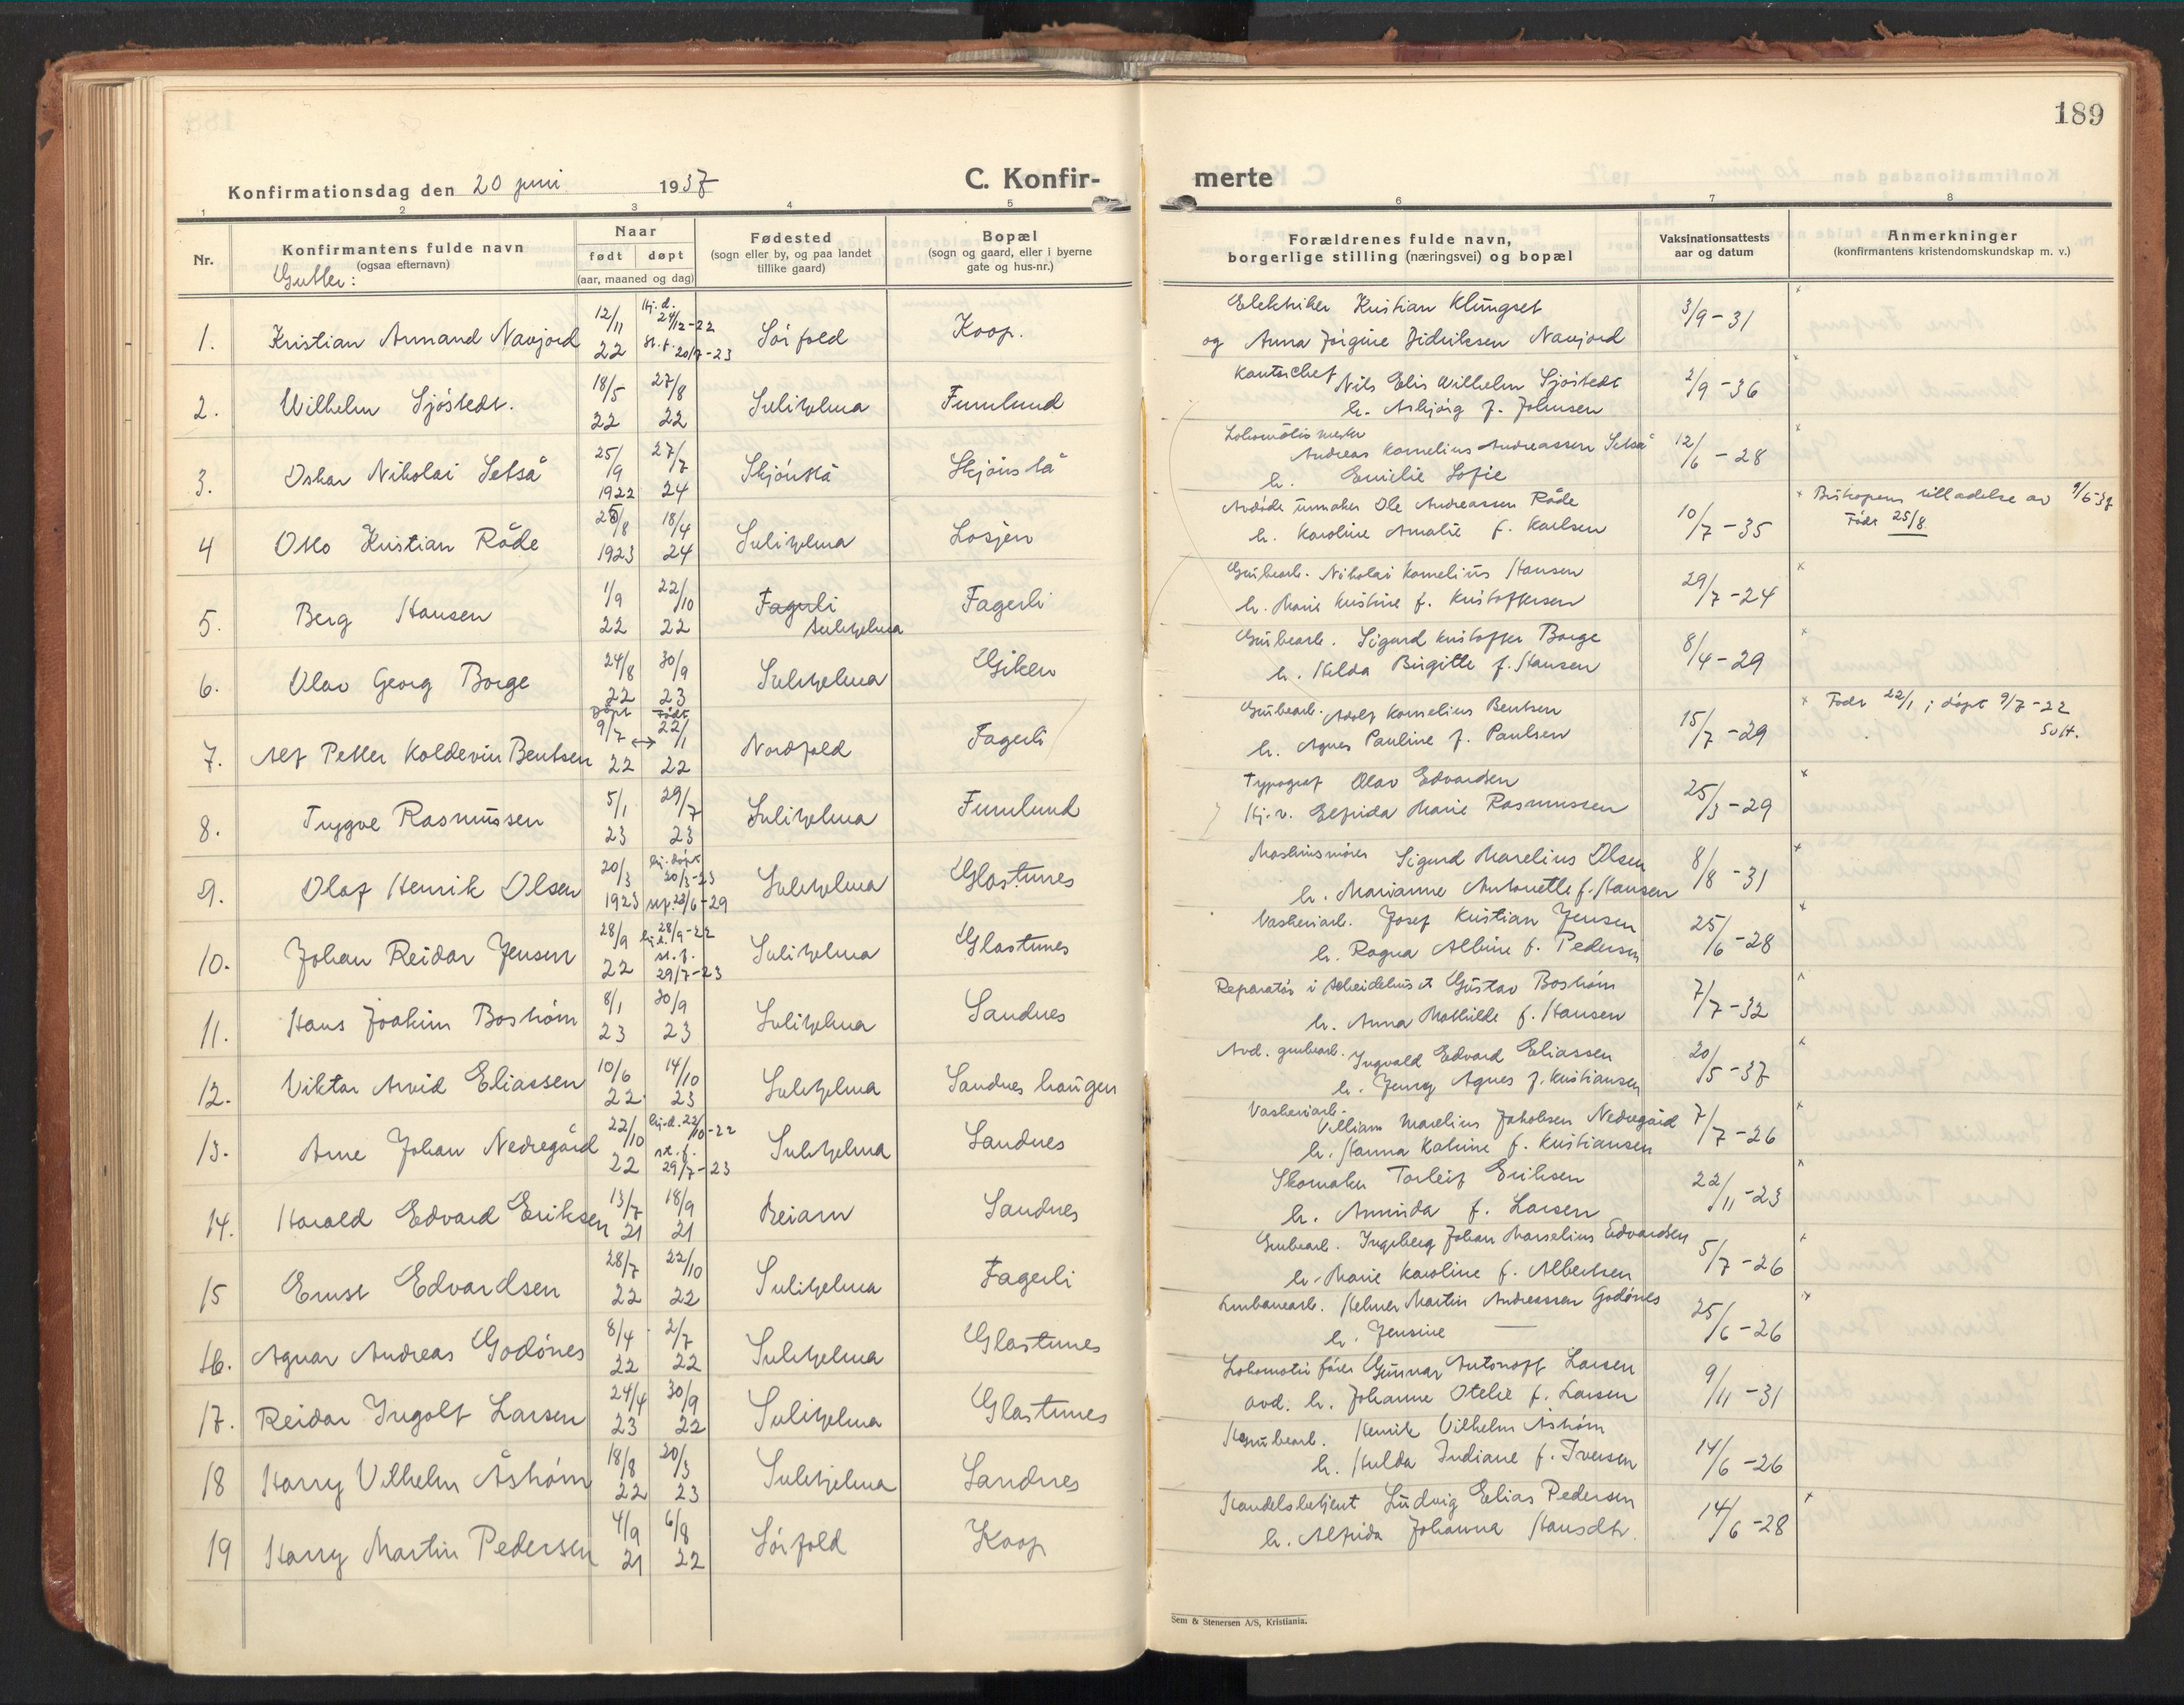 189
Konfirmationsdag den 20 juni 1937
C. Konfir-
merte
1 2 3 4 5 6 7 8
Nr.
Konfirmantens fulde navn
(ogsaa efternavn)
Gutter:
Naar
født døpt
(aar, maaned og dag)
Fødested
(sogn eller by, og paa landet
tillike gaard)
Bopæl
(sogn og gaard, eller i byerne
gate og hus-nr.)
Forældrenes fulde navn,
borgerlige stilling (næringsvei) og bopæl
Vaksinationsattests
aar og datum
Anmerkninger
(konfirmantens kristendomskundskap m. v.)
1. Kristian Armand Navjord 12/11 22 Hj.d. 24/12-22 st.f. 20/7-23 Sörfold Koop.
Elektriker Kristian Klungset
og Anna Jörgine Didriksen Navjord 3/9-31 x
2. Wilhelm Sjöstedt. 18/5 22 27/8 22 Sulitjelma Furulund
Nils Elis Wilhelm Sjöstedt
h. Asbjörg f. Johnsen 2/9-36 x
3. Oskar Nikolai Setså 25/9 1922 27/7 24 Skjönstå Skjönstå
Lokomotivmester
Andreas Kornelius Andreassen Setså
h. Emilie Sofie 12/6-28 x
4 Otto Kristian Råde 25/8 1923 18/4 24 Sulitjelma Losjen
Avdöde urmaker Ole Andreassen Råde
h. Karoline Amalie f. Karlsen 10/7-35 x Biskopens tilladelse av 9/6-37
Födt 25/8
5. Berg Hansen 1/9 22 22/10 22 Fagerli Sulitjelma Fagerli
Grubearb. Nikolai Kornelius Hansen
h. Marie Kristine f. Kristoffersen 29/7-24 x
6. Olav Georg Borge 24/8 22 30/9 23 Sulitjelma Giken
Grubearb. Sigurd Kristoffer Borge
h. Hilda Birgitte f. Hansen 8/4-29 x
7. Alf Petter Koldevin Bentsen Döpt 9/7 22 ↔ Födt 22/1 22 Nordfold Fagerli
Grubearb. Adolf Kornelius Bentsen
h. Agnes Pauline f. Paulsen 15/7-29 x Födt 22/1; döpt 9/7-22
8. Trygve Rasmussen 5/1 23 29/7 23 Sulitjelma Furulund
Typograf Olav Edvardsen
Hj.v. Elfrida Marie Rasmussen 25/3-29 x
9. Olaf Henrik Olsen 20/3 1923 hj.döpt 20/3-23 23/6-29 Sulitjelma Glastunes
Maskinsmörer Sigurd Marelius Olsen
h. Marianne Antonette f. Hansen 8/8-31 x
10. Johan Reidar Jensen 28/9 22 hj.d. 28/9-22 st.f. 29/7-23 Sulitjelma Glastunes
Vaskeriarb. Josef Kristian Jensen
h. Ragna Albine f. Pedersen 25/6-28 x
11. Hans Joakim Boström 8/1 23 30/9 23 Sulitjelma Sandnes
Reparatör i Scheidehuset Gustav Boström
h. Anna Mathilde f. Hansen 7/7-32 x
12. Viktor Arvid Eliassen 10/6 22 14/10 23 Sulitjelma Sandnes haugen
Avd. grubearb. Ingvald Edvard Eliassen
h. Jenny Agnes f. Kristiansen 20/5-37 x
13. Arne Johan Nedregård 22/10 22 hj.d. 22/10-22 st.f. 29/7-23 Sulitjelma Sandnes
Vaskeriarb.
Villiam Marelius Jakobsen Nedregård
h. Hanna Katrine f. Kristiansen 7/7-26 x
14. Harald Edvard Eriksen 13/7 21 18/9 21 Beiarn Sandnes
Skomaker Torleif Eriksen
h. Arminda f. Larsen 22/11-23 x
15 Ernst Edvardsen 28/7 22 22/10 22 Sulitjelma Fagerli
Grubearb. Ingeberg Johan Marselius Edvardsen
h. Marie Karoline f. Albertsen 5/7-26 x
16. Agnar Andreas Godönes 8/4 22 2/7 22 Sulitjelma Glastunes
Helmer Martin Andreassen Godönes
h. Jensine — 25/6-26 x
17. Reidar Ingolf Larsen 24/4 23 30/9 22 Sulitjelma Glastunes
Lokomotivförer Gunnar Antonoff Larsen
avd. h. Johanne Otelie f. Larsen 9/11-31
18 Harry Vilhelm Åström 18/8 22 20/3 23 Sulitjelma Sandnes
Grubearb. Henrik Vilhelm Åström
h. Hulda Indiane f. Iversen 14/6-26
19 Harry Martin Pedersen 4/9 21 6/8 22 Sörfold Koop
Handelsbetjent Ludvig Elias Pedersen
h. Alfrida Johanna Hansdtr. 14/6-28 x
Sem & Stenersen A/S, Kristiania.